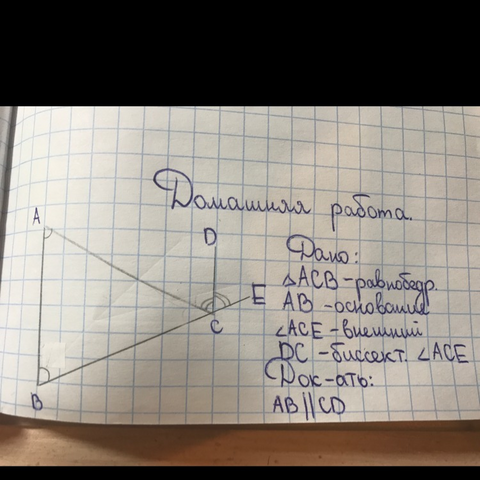 Домашняя работа.
A
D
E
C
B
Дано:
△ACB-равнобедр.
AB -основание
∠ACE-внешний
DC -биссект. ∠ACE
Док-ать:
AB||CD